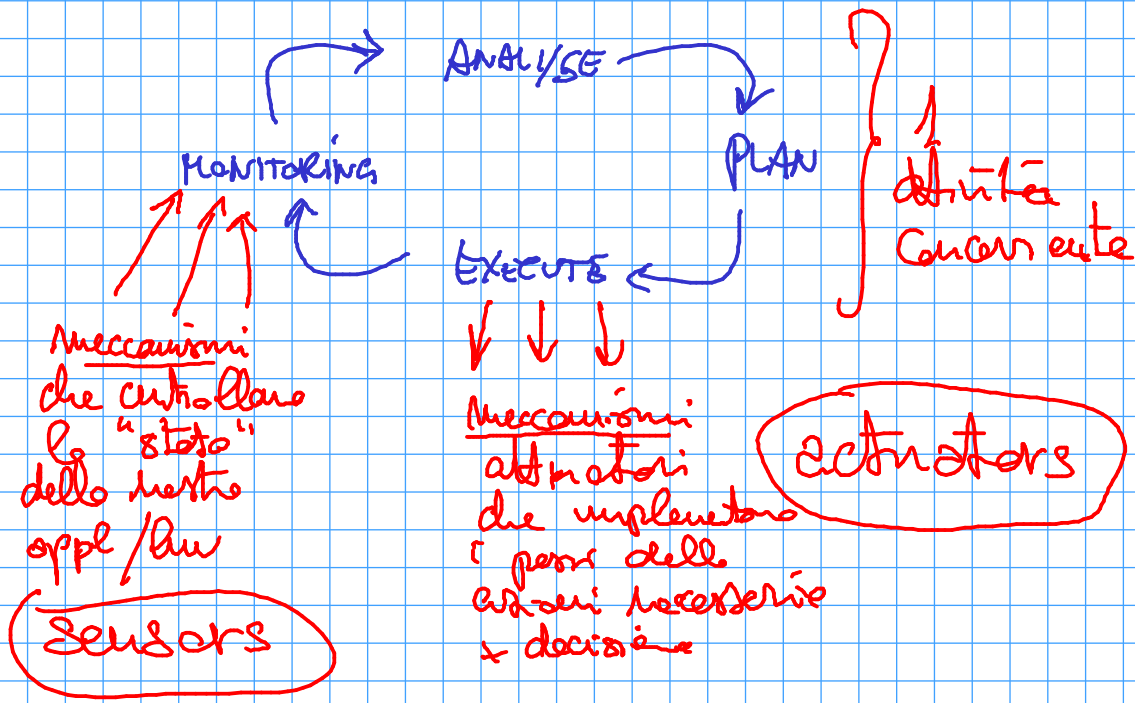 ANALYSE
MONITORING
PLAN
EXECUTE
attività
concorrente
meccanismi
che controllano
lo "stato"
della nostra
appl/hw
sensors
meccanismi
attuatori
che implementano
i passi delle
azioni necessarie
x decisione
actuators